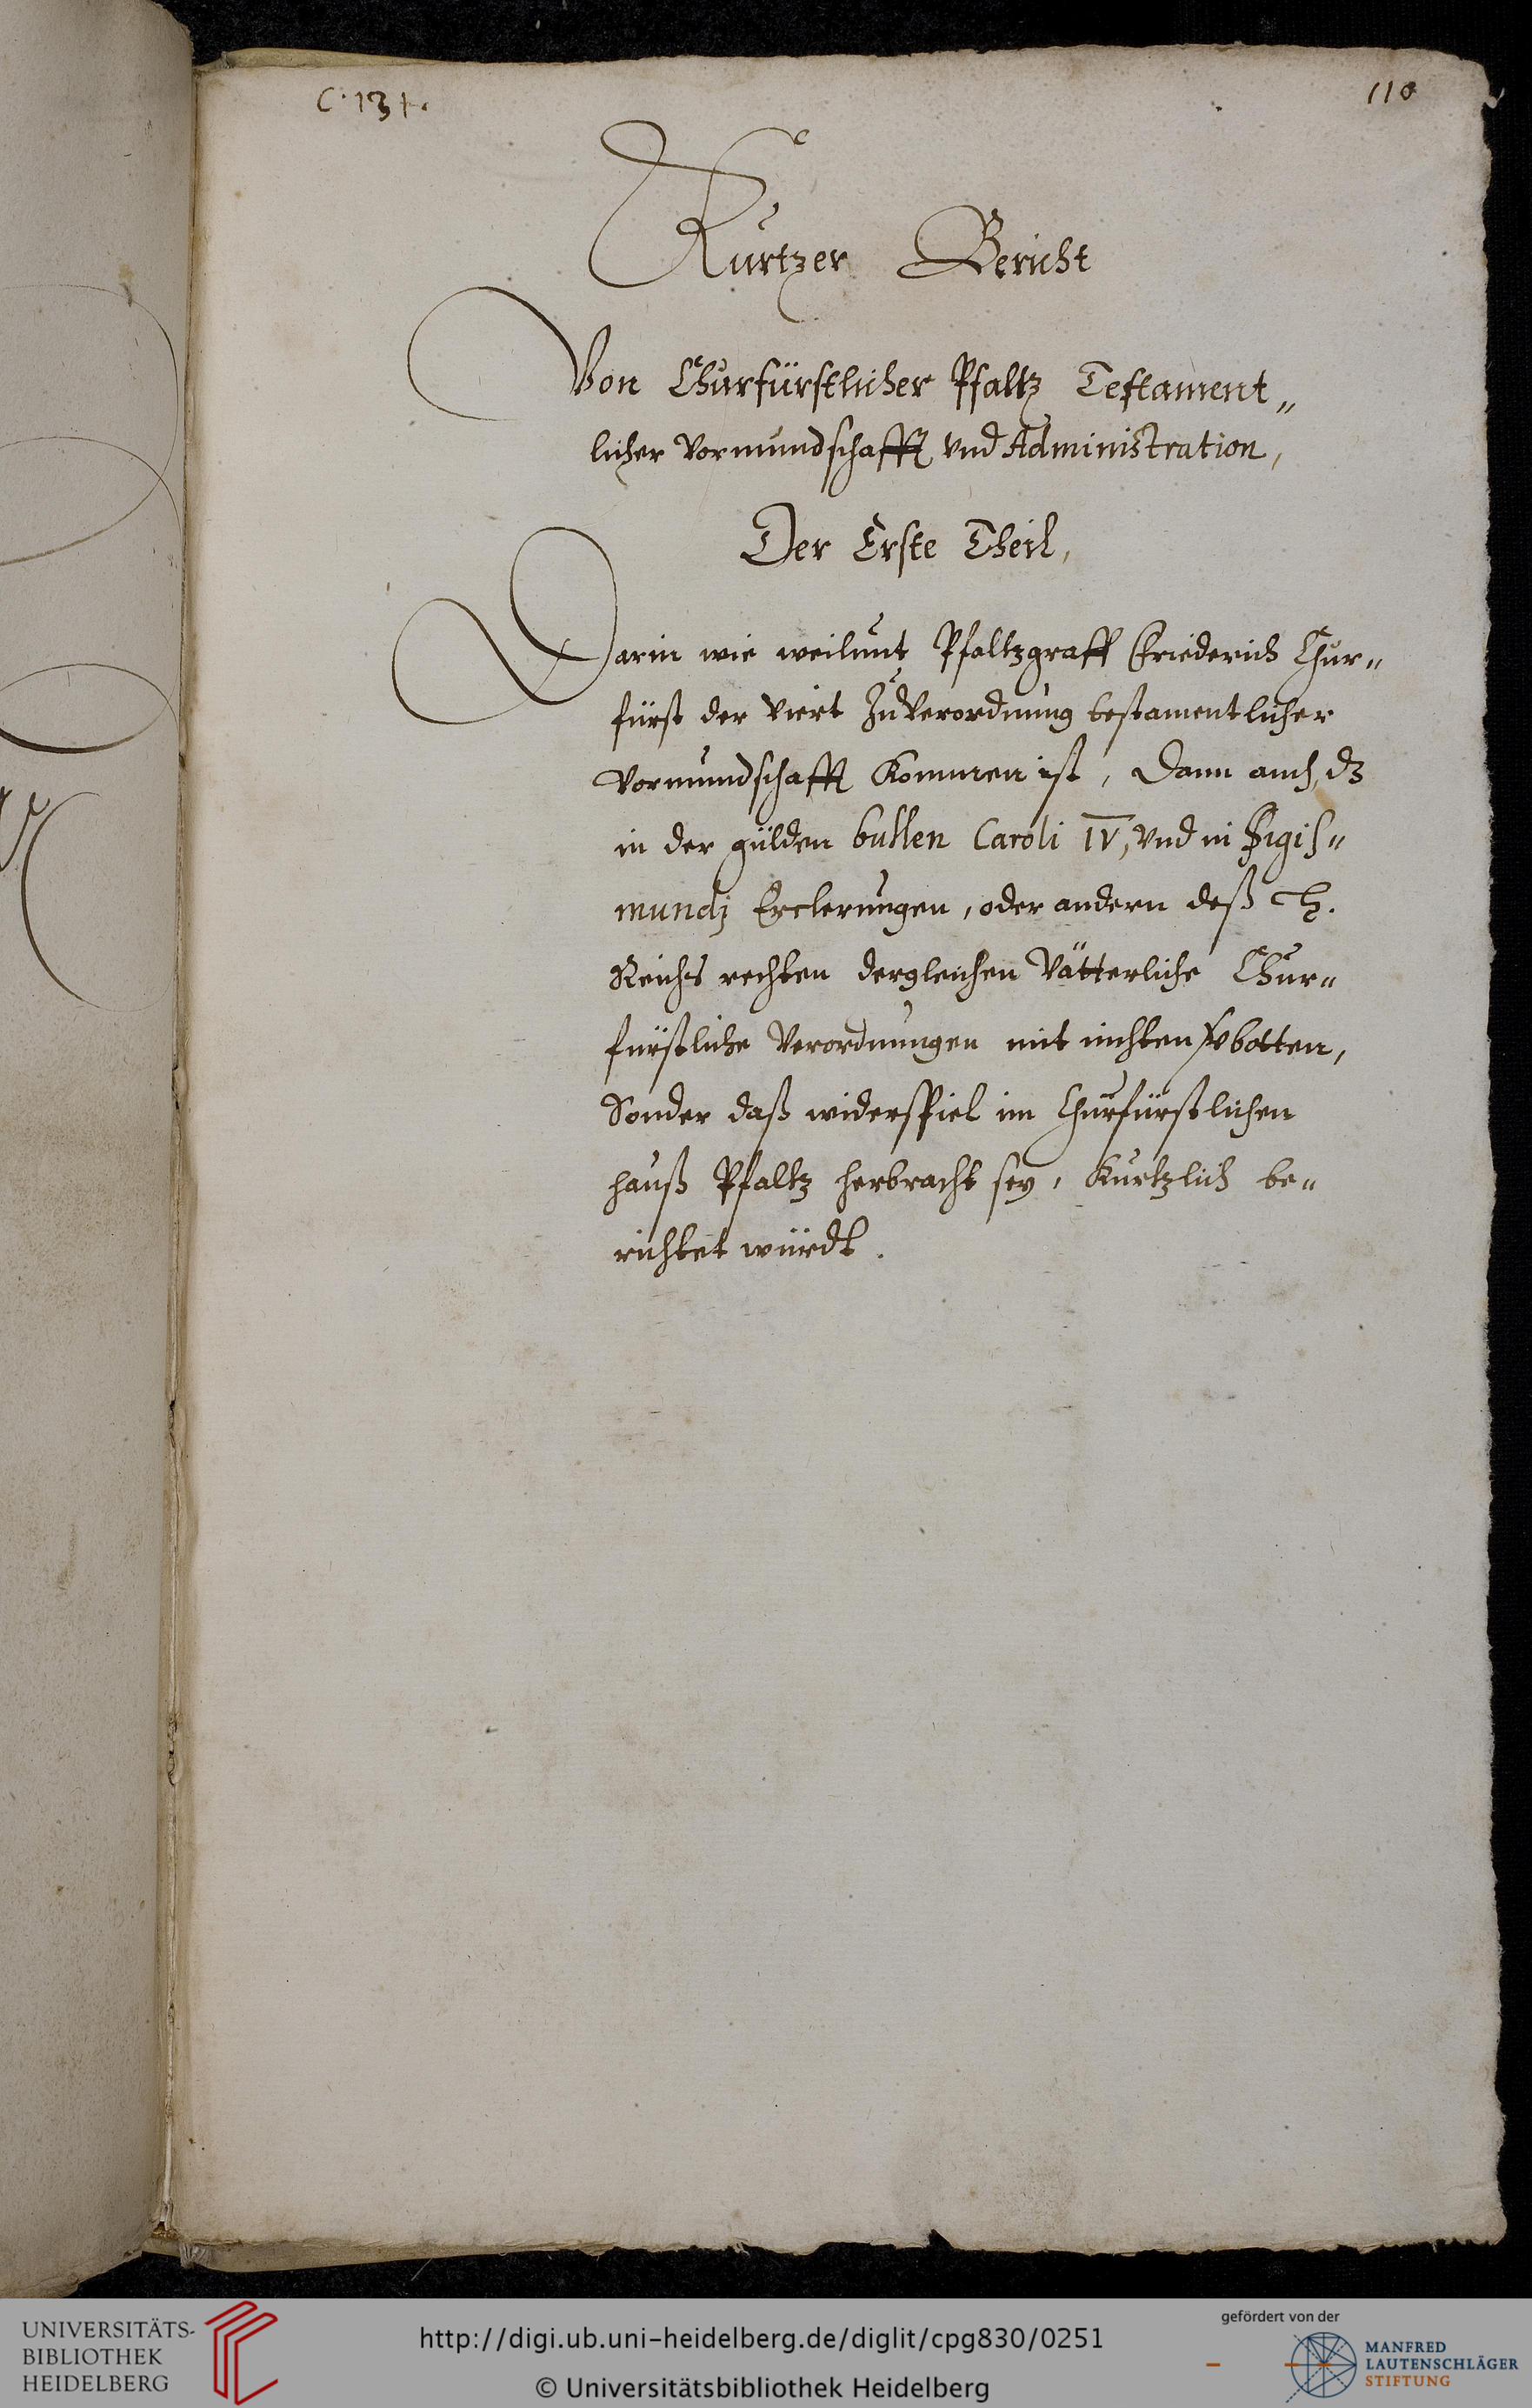 C. 131.
110
Kurtzer Bericht
Von Churfürstlicher Pfaltz Testament„
licher Vormundschafft vnd Administration,
Der Erste Theil,
Darin wie weilunt Pfaltzgraff Friederich Chur„
fürst der Viert Zu Verordnung testamentlicher
Vormundschafft Kommen ist, Dann auch, dz
in der gülden bullen Caroli IV, vnd in Sigis„
mundj Erclerungen, oder andern deß H.
Reichs rechten dergleichen Vätterliche Chur„
fürstliche Verordnungen mit nichten verbotten,
Sonder daß widerspiel im Churfürstlichen
hauß Pfaltz herbracht sey, Kurtzlich be„
richtet würdt.
UNIVERSITÄTS-
BIBLIOTHEK
HEIDELBERG
http://digi.ub.uni-heidelberg.de/diglit/cpg830/0251
© Universitätsbibliothek Heidelberg
gefördert von der
MANFRED
LAUTENSCHLÄGER
STIFTUNG